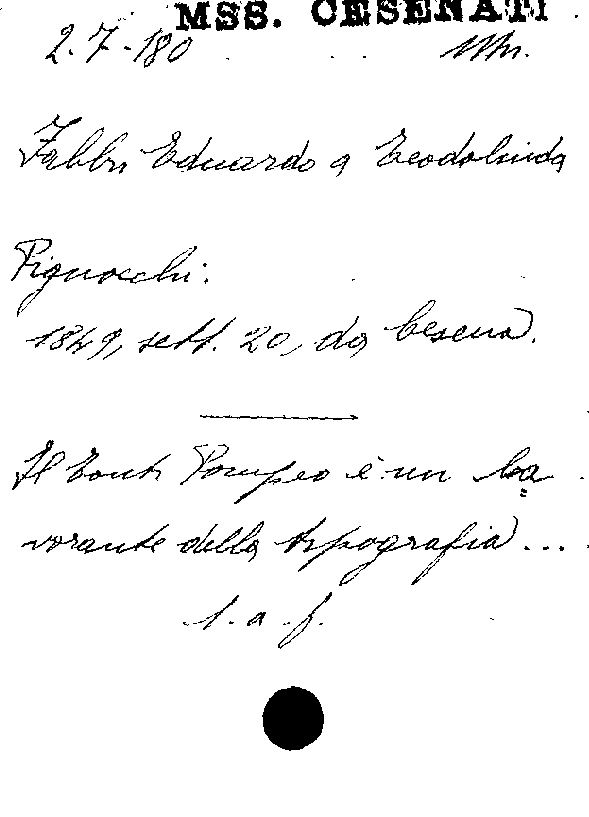 MSS. CESENATI
2.7.-180 Mn.
Fabbri Eduardo a Teodolinda
Pignocchi.
1849, sett. 20, da Cesena.
Il Conti Pompeo è un la=
vorante della tipografia...
1. a f.